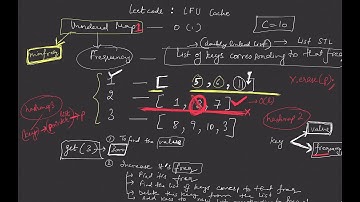 Leetcode : LFU Cache
Unordered Map 1
O(1)
C = 10
(doubly linked list) → List STL
minfreq
Frequency
List of keys corresponding to that freq
1 — [ 5, 6, 11 ]
2 — [ 1, 3, 7 ] ✓ → O(1)
3 — [ 8, 9, 10, 3 ]
hashmap
hashmap 2
key
value
frequency
get(3)
① To find the value
② Increase its freq
→ Find its freq
→ Find the list of keys corres to that freq
→ Delete this key from the list